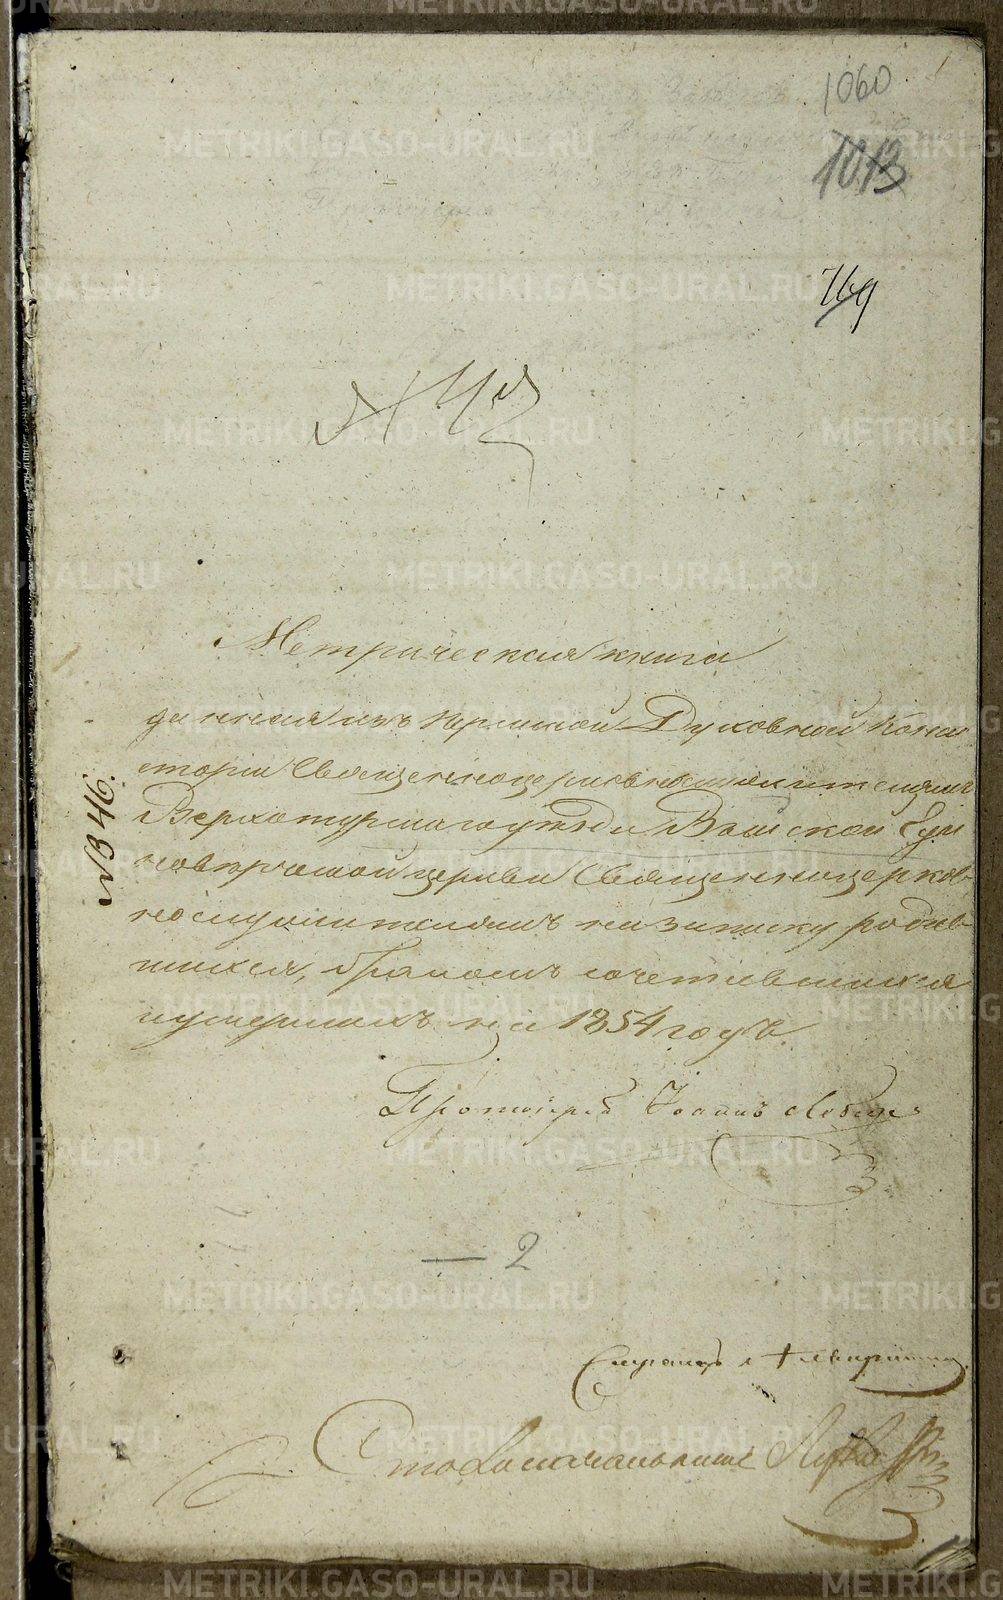 1060
1013
769
Метрическая книга
данная изъ Пермской Духовной Конси
сторiи Священноцерковнослужителямъ
Верхотурскаго уѣзда Выйской Еди
новѣрческой церкви Священноцерков-
нослужителямъ на записку родив-
шихся, бракомъ сочетавшихся
и умершихъ на 1854 годъ.
№ 346.
Протоіерей Іоаннъ
— 2
Секретарь
Столоначальникъ
METRIKI.GASO-URAL.RU